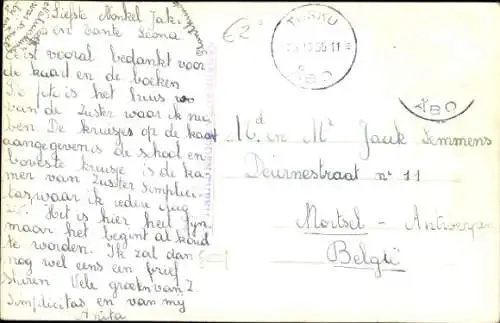 Liefste Nonkel Jak.
en tante Leona
Eerst vooral bedankt voor
de kaart en de boeken
De foto is het huis
van de Zuster waar ik nu
ben. De kruisjes op de kaart
aangegeven is de school en
bovenste kruisje is de ka-
mer van Zuster Simplici-
tas, waar ik iedere
Het is hier heel fijn
maar het begint al koud
te worden. Ik zal dan
nog wel eens een brief
sturen. Vele groeten van Z.
Simplicitas en van mij
Anita
€2
TURKU
ÅBO
ÅBO
Md en Mr Jack Lemmens
Deurnestraat n° 11
Mortsel - Antwerpen
België